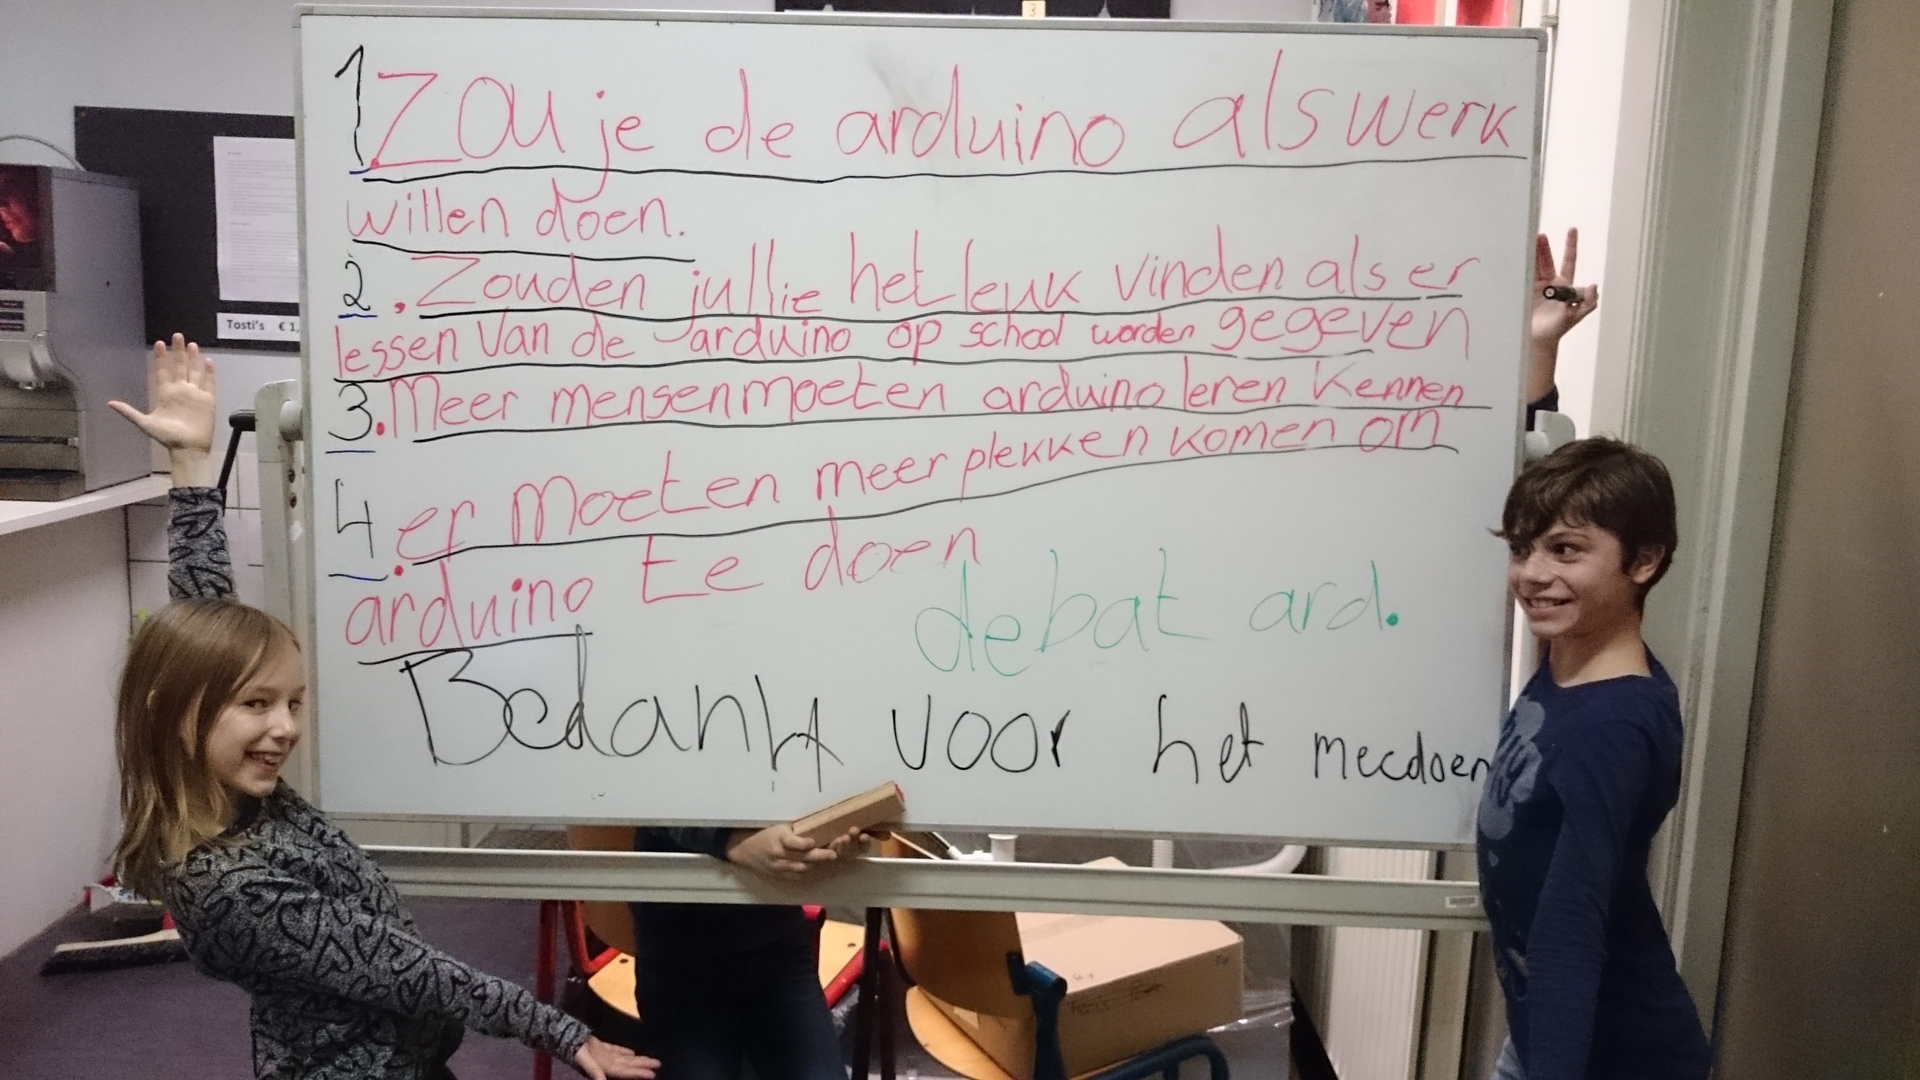 3
1. Zou je de arduino als werk
willen doen.
2. Zouden jullie het leuk vinden als er
lessen van de arduino op school worden gegeven
3. Meer mensen moeten arduino leren kennen
4. er moeten meer plekken komen om
arduino te doen
debat ard.
Bedankt voor het meedoen
Tosti's € 1,